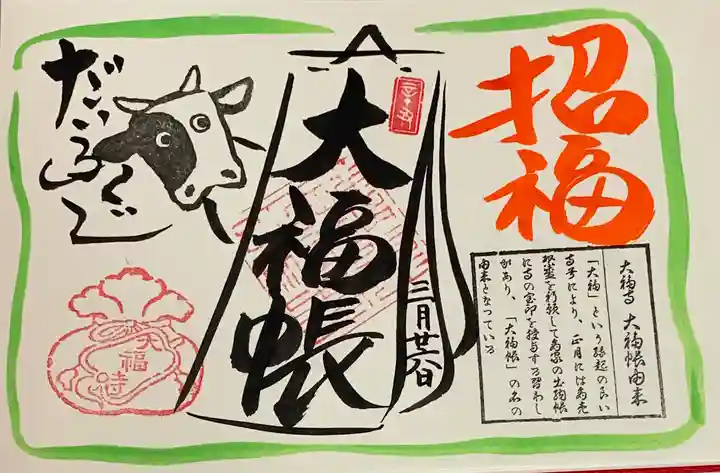 招福
大福寺 大福帳由来
「大福」という縁起の良い
寺号により、正月には商売
繁盛を祈願して商家の出納帳
に寺の宝印を授与する習わし
があり、「大福帳」の名の
由来となつている
大福帳
三月廿八日
だいふくじ
大福寺